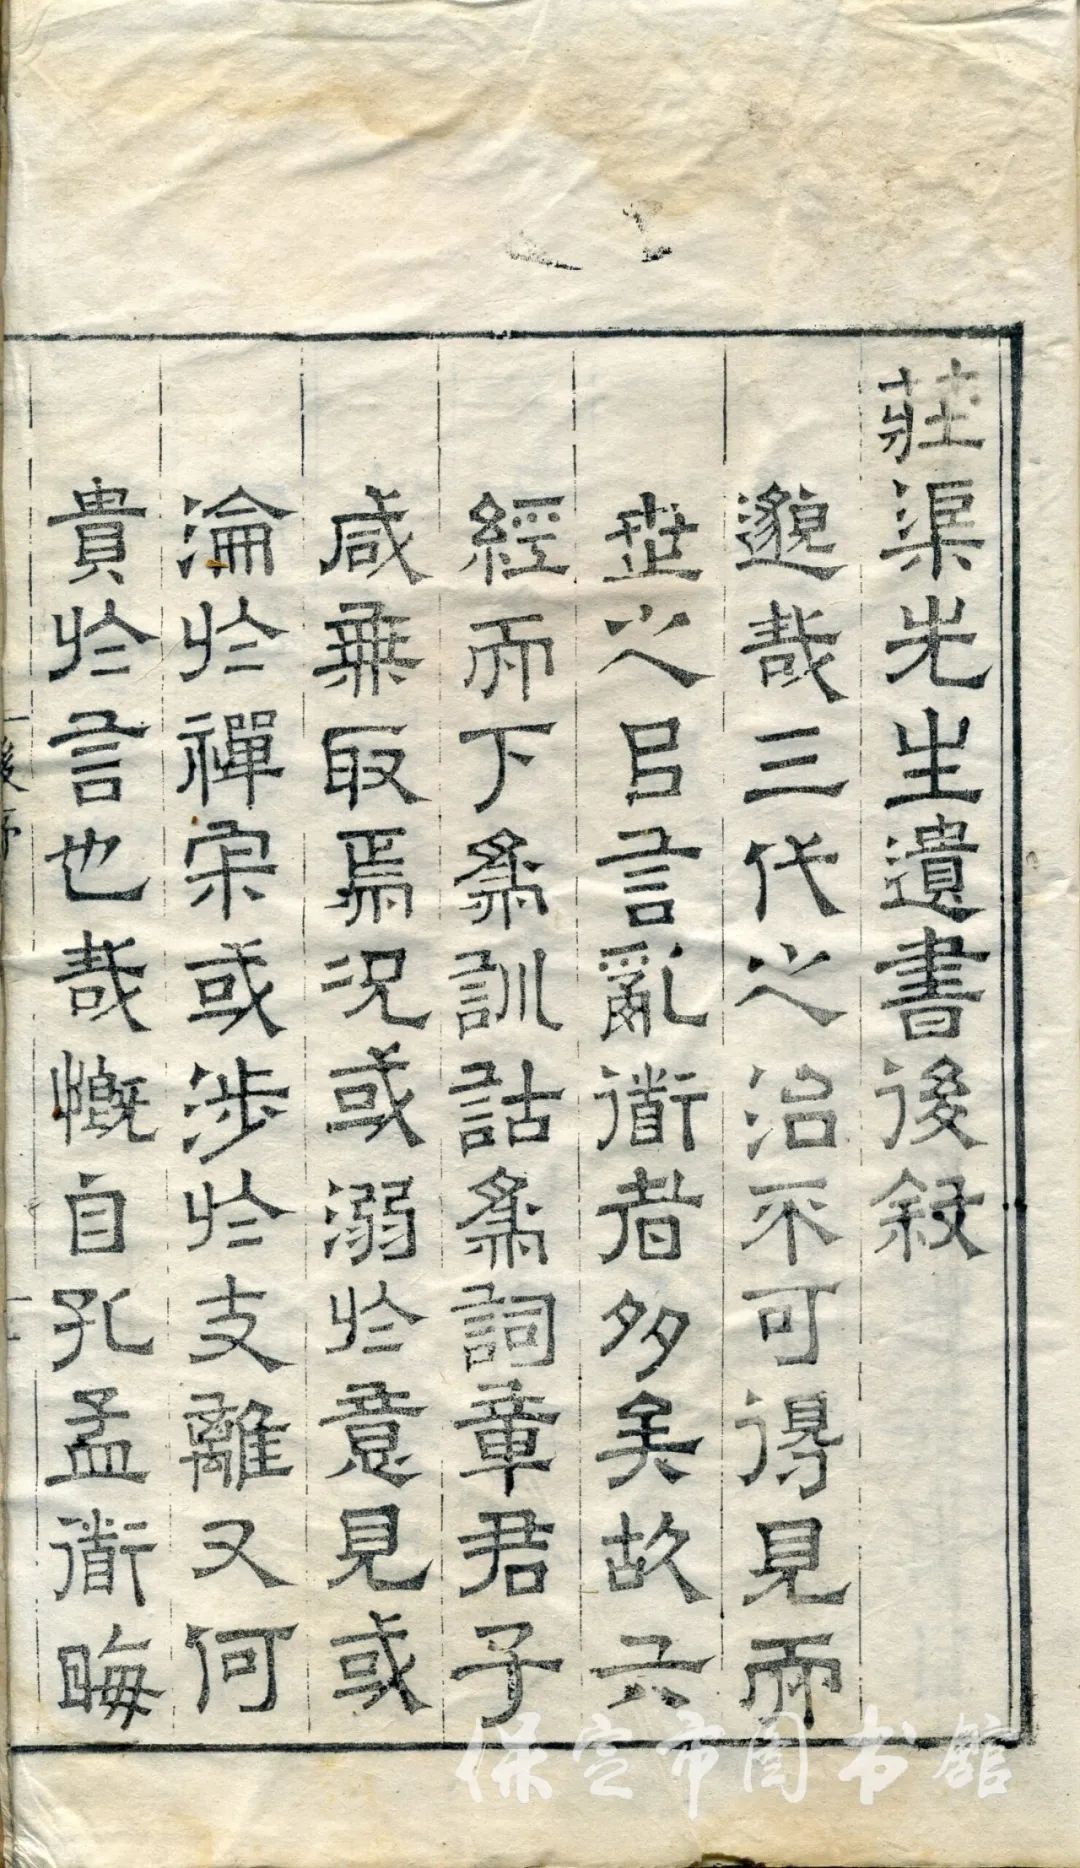 莊渠先生遺書後叙
邈哉三代之治不可得見而
世之㠯言亂衜者多矣故六
經而下爲訓詁爲詞章君子
咸無取焉況或溺於意見或
淪於禪宗或涉於支離又何
貴於言也哉慨自孔孟衜晦
後序
一
保定市图书馆